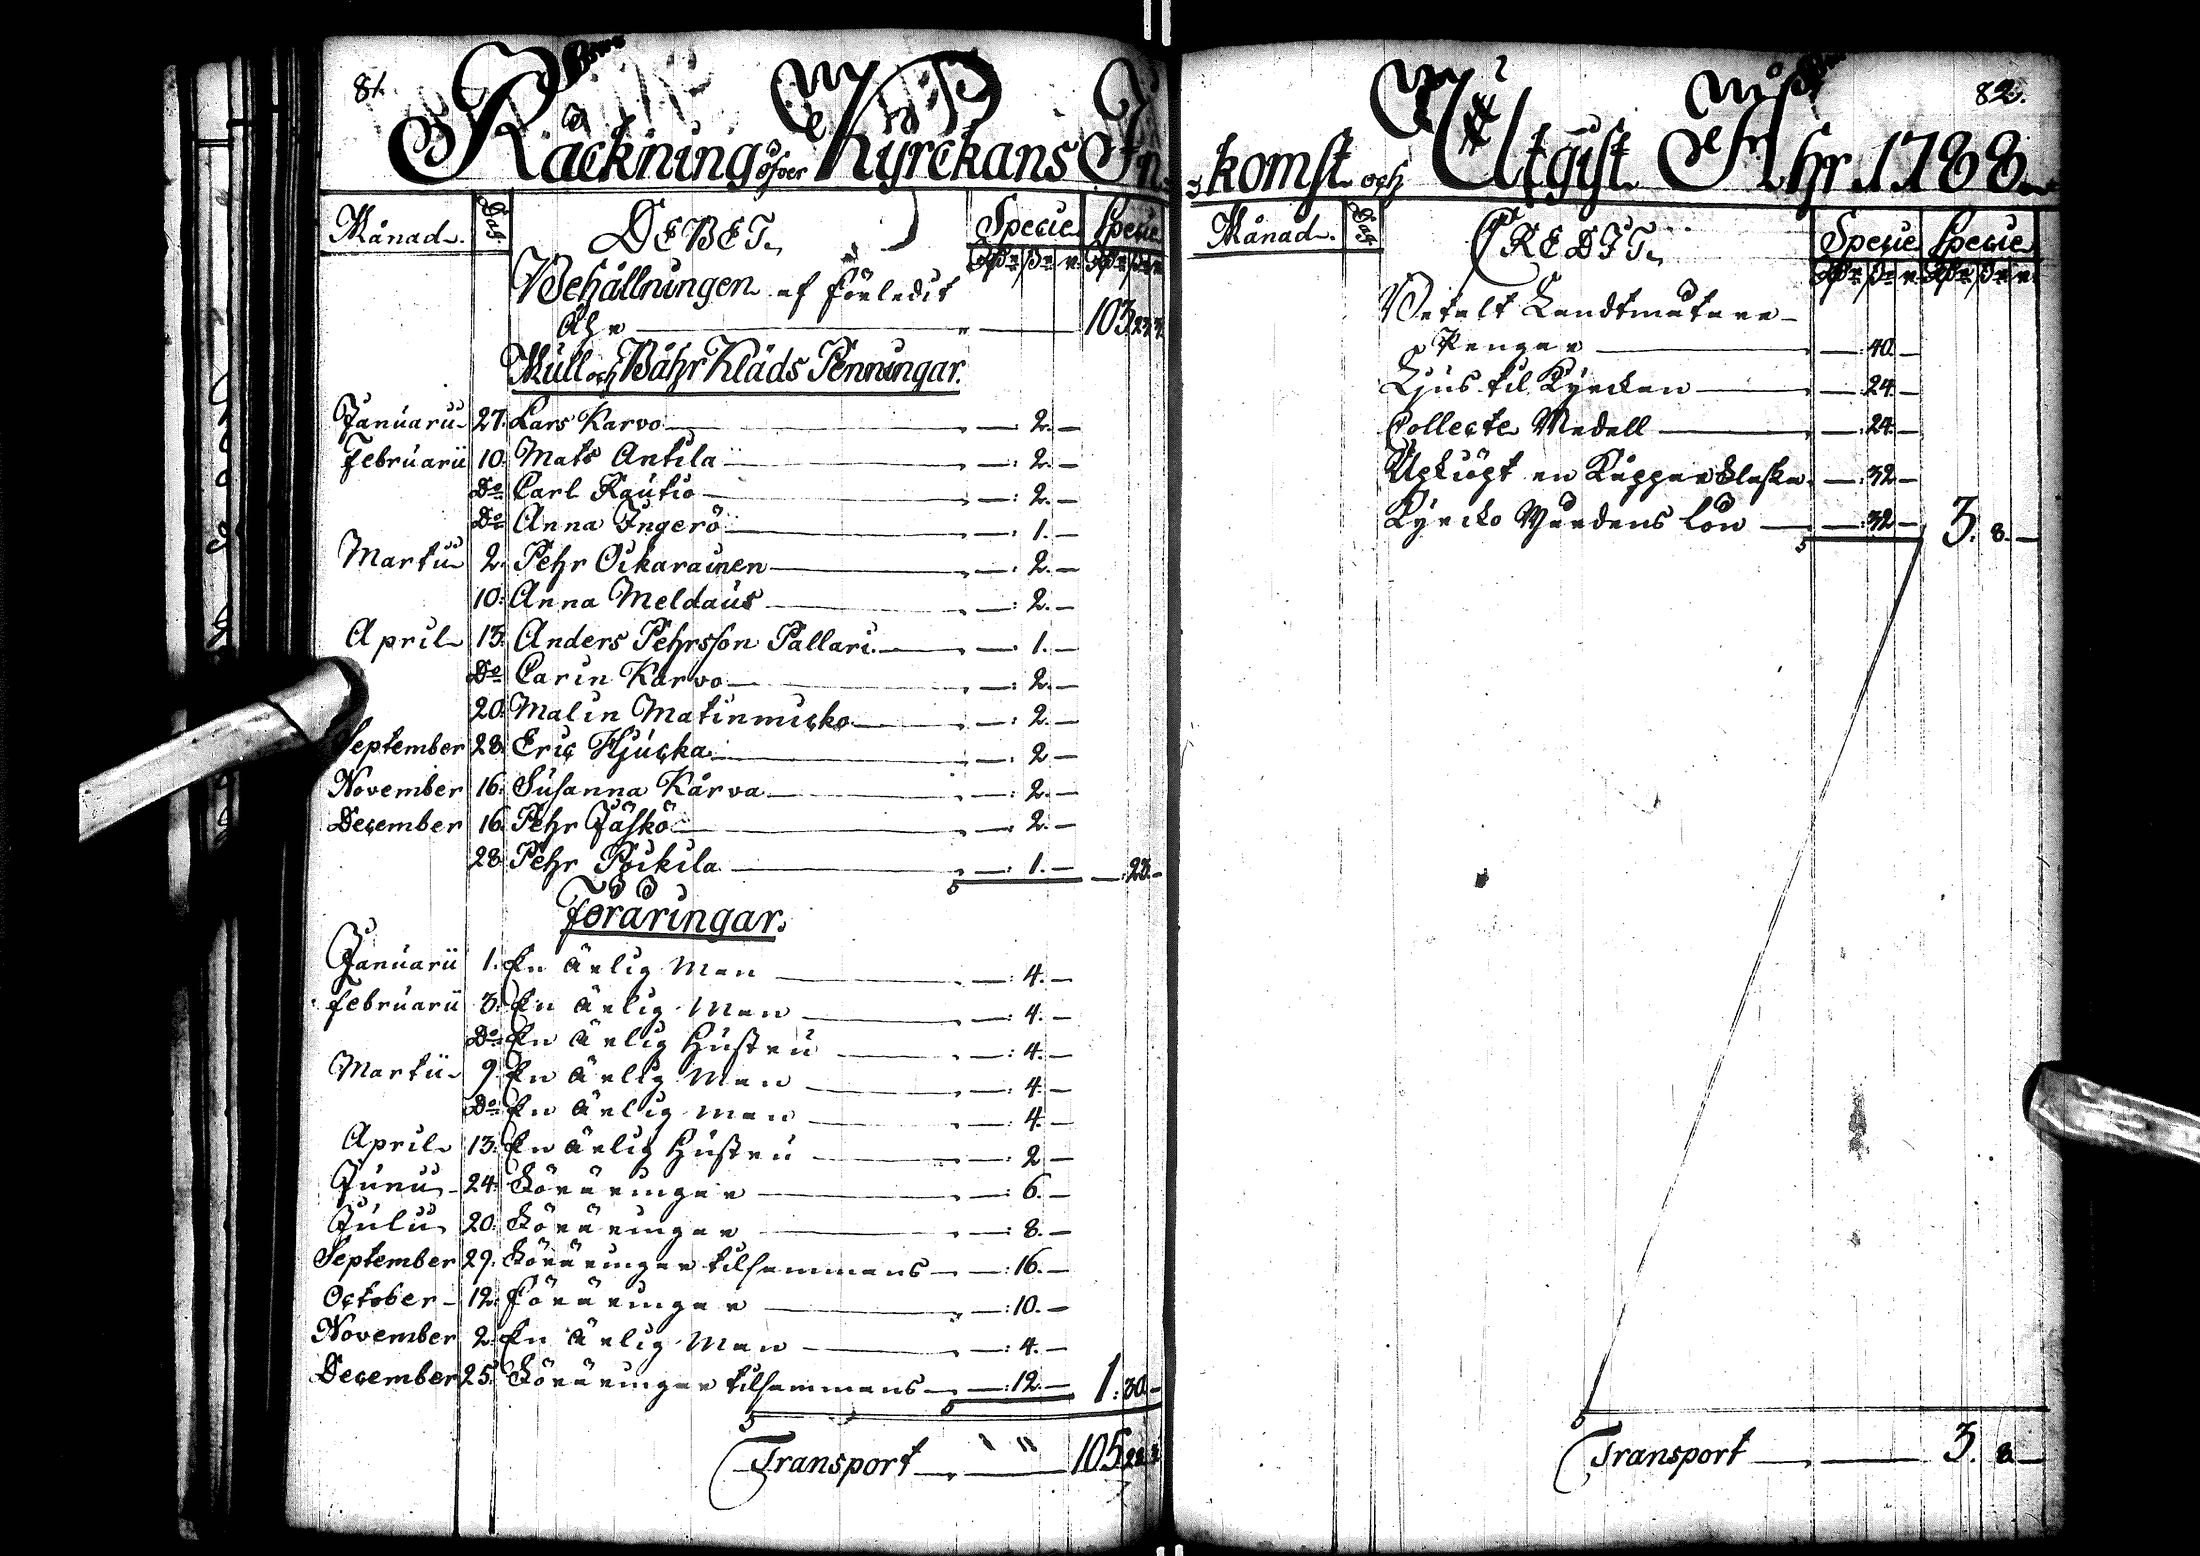 81.
Räckning öfver Kyrckans In-
Månad. Dag. DEBET. Specie Specie
Behållningen af förledit
Åhr 103. 23.
Mull och Båhr Kläds Penningar.
Januarii 27. Lars Karvo — 2. —
Februarii 10. Mats Antila — : 2. —
Do Carl Rautio — : 2. —
Do Anna Ingerö — : 1. —
Martii 2. Pehr Oikarainen — : 2. —
10. Anna Meldaus — : 2. —
April 13. Anders Pehrsson Pallari — 1. —
Do Carin Karvo — : 2. —
20. Malin Matinmicko — : 2. —
September 28. Eric Hjucka — : 2 —
November 16. Susanna Kårva — : 2. —
December 16. Pehr Jäskö — 2. —
28 Pehr Poikila — : 1. — — : 23. —
Föräringar.
Januarii 1. En ärlig Man — : 4. —
Februarii 3. En ärlig Man — : 4. —
Do En ärlig Hustru — : 4. —
Martii 9. En ärlig Man — : 4 —
Do En ärlig man — : 4. —
April 13. En ärlig Hustru — : 2 —
Junii 24. Föräringar — : 6. —
Julii 20. Föräringar — : 8. —
September 29. Föräringar tilsammans — : 16. —
October 12. Föräringar — : 10. —
November 2. En ärlig Man — : 4. —
December 25. Föräringar tilsammans — : 12. — 1 : 30. —
Transport 105
82.
-komst och Utgift Åhr 1788.
Månad. Dag. CREDIT. Specie Specie
Betalt Landtmätare
Pengar — : 40. —
Ljus til Kyrckan — : 24. —
Collecte Medell — : 24. —
Upkiöpt en Kåppar flaska — : 32 —
Kyrcko Vardens lön — : 32 — 3. 8. —
Transport 3. 8. —